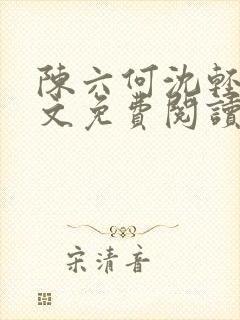 陳六何沈輕
文免費閱讀
宋清音